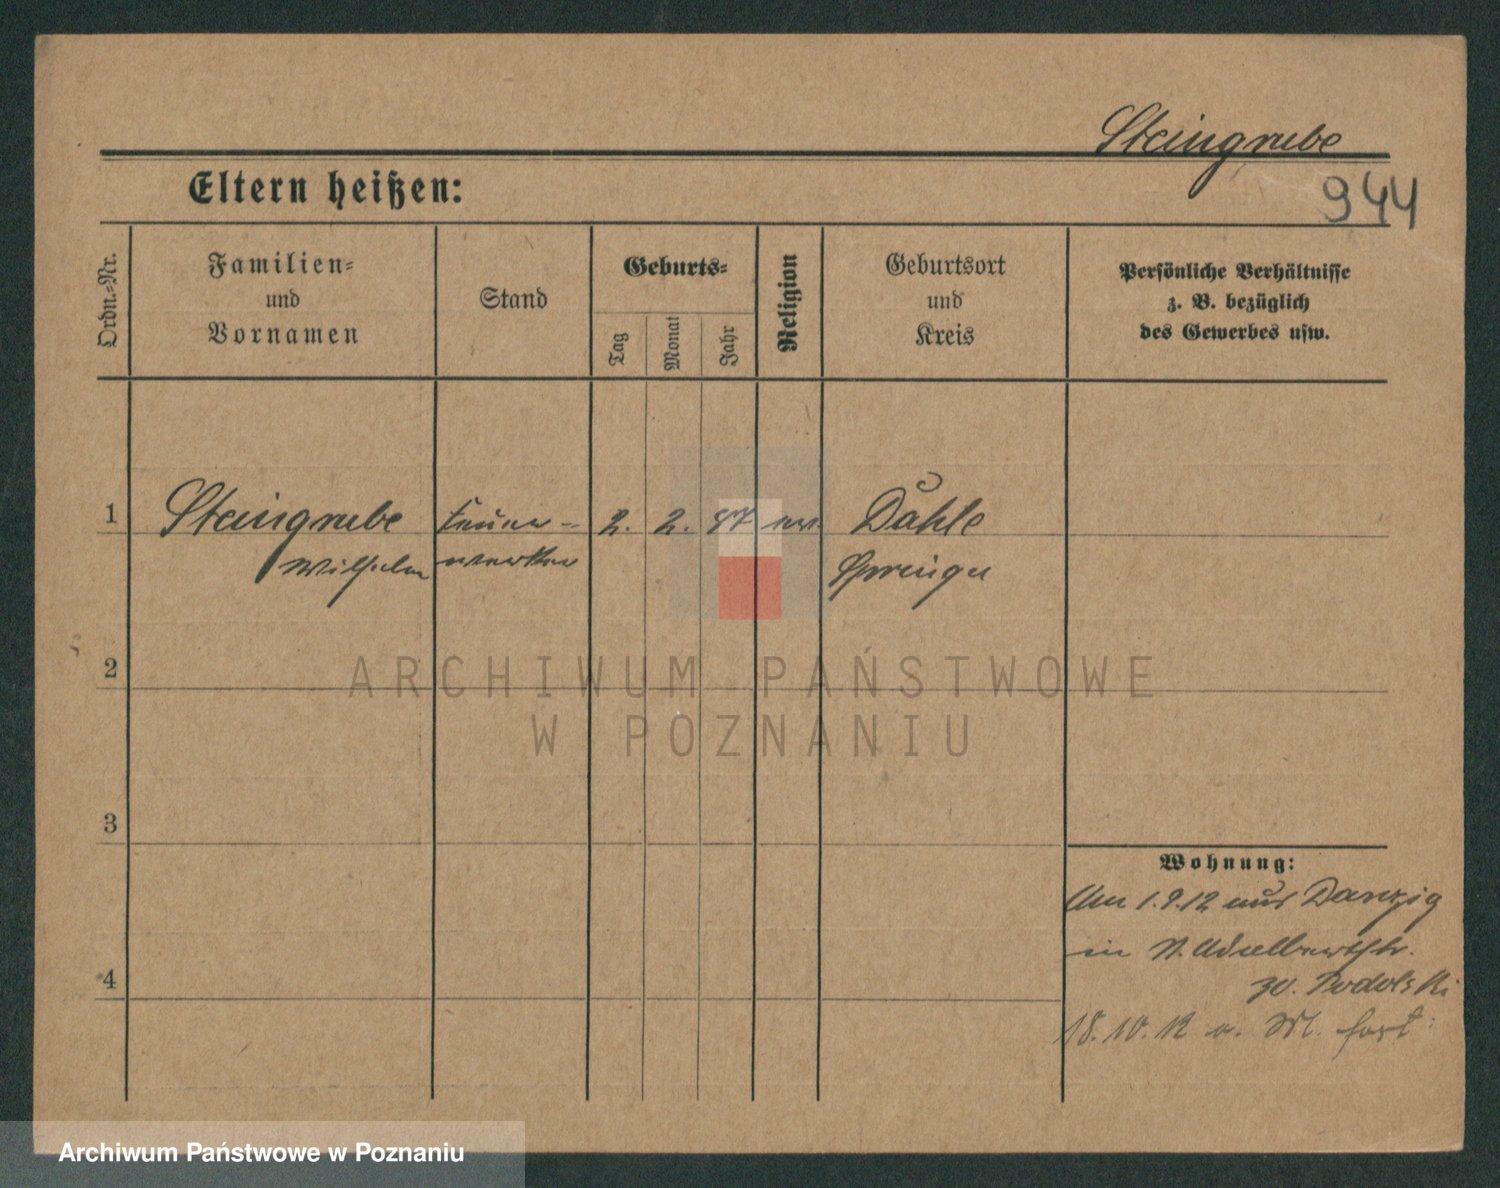 Steingrube
Eltern heißen:
944
Ordn.-Nr.
Familien-
und
Vornamen
Stand
Geburts-
Tag
Monat
Jahr
Religion
Geburtsort
und
Kreis
Persönliche Verhältnisse
z. B. bezüglich
des Gewerbes usw.
1 Steingrube Feuer- 2. 2. 87 ev. Dahle
Wilhelm werker
2
3
4
Wohnung:
1.9.12 aus Danzig
in
Podolski
18.10.12 fort
ARCHIWUM PAŃSTWOWE
W POZNANIU
Archiwum Państwowe w Poznaniu